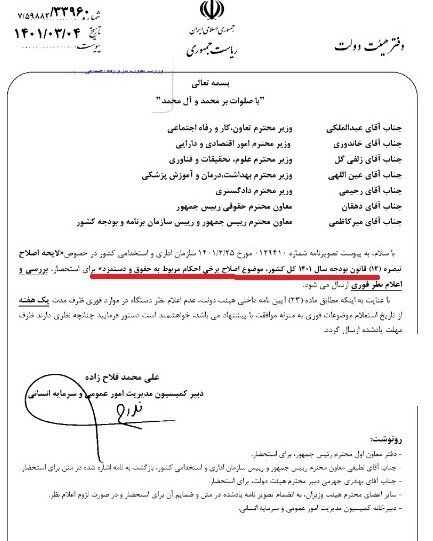 جمهوری اسلامی ایران
ریاست جمهوری
دفتر هیئت دولت
شماره ۷/۵۹۸۸۲/۳۳۹۶۰
تاریخ ۱۴۰۱/۰۳/۰۴
پیوست
بسمه تعالی
"با صلوات بر محمد و آل محمد"
جناب آقای عبدالملکی وزیر محترم تعاون، کار و رفاه اجتماعی
جناب آقای خاندوزی وزیر محترم امور اقتصادی و دارایی
جناب آقای زلفی گل وزیر محترم علوم، تحقیقات و فناوری
جناب آقای عین اللهی وزیر محترم بهداشت، درمان و آموزش پزشکی
جناب آقای رحیمی وزیر محترم دادگستری
جناب آقای دهقان معاون محترم حقوقی رییس جمهور
جناب آقای میرکاظمی معاون محترم رییس جمهور و رییس سازمان برنامه و بودجه کشور
با سلام، به پیوست تصویرنامه شماره ۰۱۲۹۴۱۰ مورخ ۱۴۰۱/۲/۲۵ سازمان اداری و استخدامی کشور در خصوص «لایحه اصلاح
تبصره (۱۲) قانون بودجه سال ۱۴۰۱ کل کشور، موضوع اصلاح برخی احکام مربوط به حقوق و دستمزد» برای استحضار، بررسی و
اعلام نظر فوری ارسال می شود.
با عنایت به اینکه مطابق ماده (۲۳) آیین نامه داخلی هیئت دولت، عدم اعلام نظر دستگاه در موارد فوری ظرف مدت یک هفته
از تاریخ استعلام موضوعات فوری به منزله موافقت با پیشنهاد می باشد، خواهشمند است دستور فرمایید چنانچه نظری دارند ظرف
مهلت یادشده ارسال گردد.
علی محمد فلاح زاده
دبیر کمیسیون مدیریت امور عمومی و سرمایه انسانی
رونوشت:
- دفتر معاون اول محترم رئیس جمهور، برای استحضار.
- جناب آقای لطیفی معاون محترم رییس جمهور و رییس سازمان اداری و استخدامی کشور، بازگشت به نامه اشاره شده در متن برای استحضار.
- جناب آقای بهادری جهرمی دبیر محترم هیئت دولت، برای استحضار.
- سایر اعضای محترم هیئت وزیران، به انضمام تصویر نامه یادشده در متن و ضمایم آن برای استحضار و در صورت لزوم اعلام نظر.
- دبیرخانه کمیسیون مدیریت امور عمومی و سرمایه انسانی.